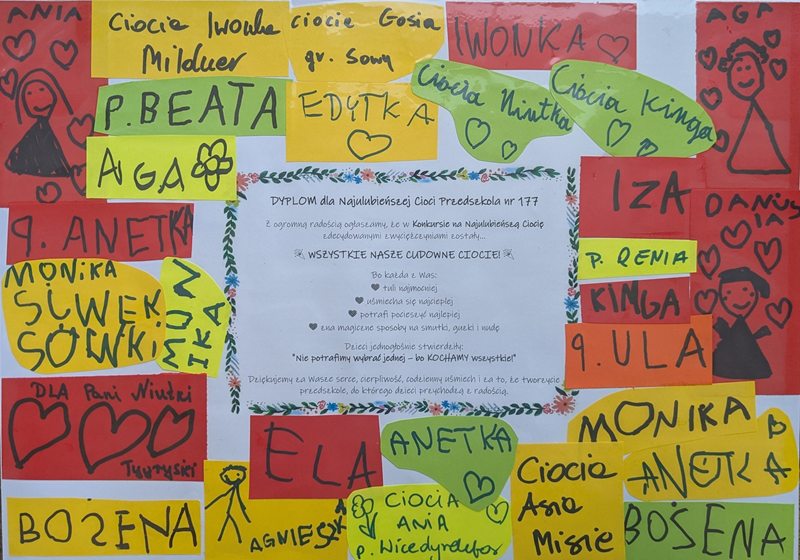 ANIA
Ciocia Iwonka
Milduer
ciocie Gosia
gr. Sowy
IWONKA
AGA
P. BEATA
EDYTKA
Ciocia Niutka
Ciocia Kinga
AGA
IZA
DANUS
IA
q. ANETKA
P. RENIA
MONIKA
SIWEK
SÓWKI
MON
IKA
KINGA
q. ULA
DYPLOM dla Najulubieńszej Cioci Przedszkola nr 177
Z ogromną radością ogłaszamy, że w Konkursie na Najulubieńszą Ciocię
zdecydowanymi zwyciężczyniami zostały...
WSZYSTKIE NASZE CUDOWNE CIOCIE!
Bo każda z Was:
tuli najmocniej
uśmiecha się najcieplej
potrafi pocieszyć najlepiej
zna magiczne sposoby na smutki, guzki i nudę
Dzieci jednogłośnie stwierdziły:
"Nie potrafimy wybrać jednej – bo KOCHAMY wszystkie!"
Dziękujemy za Wasze serce, cierpliwość, codzienny uśmiech i za to, że tworzycie
przedszkole, do którego dzieci przychodzą z radością.
DLA Pani Niutki
Tygryski
ELA
ANETKA
MONIKA
P
ANETKA
BOŻENA
AGNIESZK
CIOCIA
ANIA
p. Wicedyrektor
Ciocia
Asia
Misie
BOŻENA